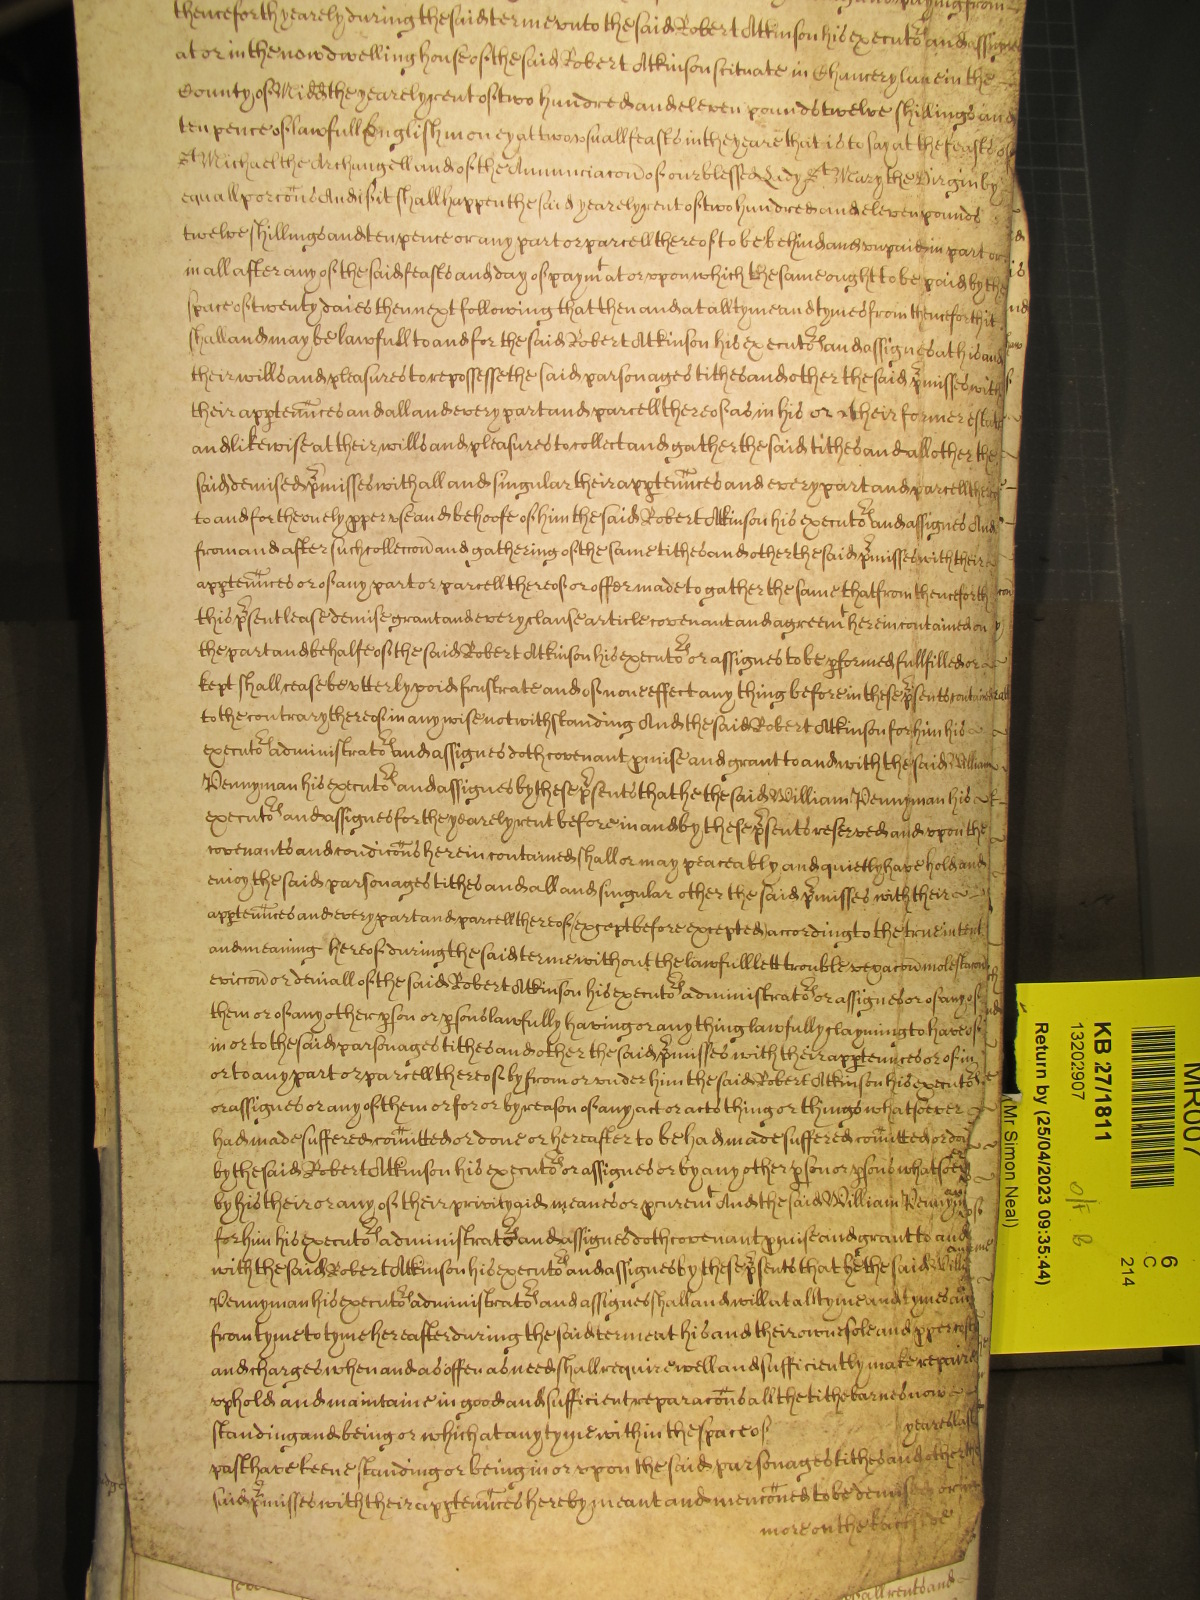 thenceforth yearely during the said terme unto the said Robert Atkinson his executors and assignes
at or in the now dwelling house of the said Robert Atkinson scituate in Chancery lane in the
County of Midd the yearely rent of two hundred and eleven pounds twelve shillings and
ten pence of lawfull English money at two usuall feasts in the yeare that is to say at the feasts of
St Michael the Archangell and of the Annunciacon of our blessed Lady St Mary the Virgin by
equall porcons And if it shall happen the said yearely rent of two hundred and eleven pounds
twelve shillings and ten pence or any part or parcell thereof to be behind and unpaid in part or
in all after any of the said feasts and day of paymt at or upon which the same ought to be paid by the
space of twenty daies then next following that then and at all tyme and tymes from thenceforth it
shall and may be lawfull to and for the said Robert Atkinson his executors and assignes at his and
their wills and pleasures to repossesse the said parsonages tithes and other the said pmisses with
their apptennces and all and every part and parcell thereof as in his or their former estate
and likewise at their wills and pleasures to collect and gather the said tithes and all other the
said demised pmisses with all and singular their apptennces and every part and parcell thereof
to and for the onely pper use and behoofe of him the said Robert Atkinson his executors and assignes And
from and after such colleccon and gathering of the same tithes and other the said pmisses with their
apptennces or of any part or parcell thereof or offer made to gather the same that from thenceforth
this psent lease demise grant and every clause article covenant and agreemt herein contained on
the part and behalfe of the said Robert Atkinson his executors or assignes to be pformed fullfilled or
kept shall cease be utterly void frustrate and of none effect any thing before in these psents contained
to the contrary thereof in any wise notwithstanding And the said Robert Atkinson for him his
executors administrators and assignes doth covenant pmise and grant to and with the said William
Pennyman his executors and assignes by these psents that he the said William Pennyman his
executors and assignes for the yearely rent before in and by these psents reserved and upon the
covenants and condicons herein contained shall or may peaceably and quietly have hold and
enioy the said parsonages tithes and all and singular other the said pmisses with their
apptennces and every part and parcell thereof (except before excepted) according to the true intent
and meaning hereof during the said terme without the lawfull lett trouble vexacon molestacon
eviccon or deniall of the said Robert Atkinson his executors administrators or assignes or of any of
them or of any other pson or psons lawfully having or any thing lawfully clayming to have of
in or to the said parsonages tithes and other the said pmisses with their apptennces or of in
or to any part or parcell thereof by from or under him the said Robert Atkinson his executors
or assignes or any of them or for or by reason of any act or acts thing or things whatsoever
had made suffered comitted or done or hereafter to be had made suffered comitted or done
by the said Robert Atkinson his executors or assignes or by any other pson or psons whatsoever
by his their or any of their privity aid meanes or pcuremt And the said William Pennyman
for him his executors administrators and assignes doth covenant pmise and grant to and
with the said Robert Atkinson his executors and assignes by these psents that he the said Willm
Pennyman his executors administrators and assignes shall and will at all tyme and tymes and
from tyme to tyme hereafter during the said terme at his and their owne sole and pper costs
and charges when and as often as need shall require well and sufficiently make repaire
uphold and maintaine in good and sufficient reparacons all the tithe barnes nowe
standing and being or which at any tyme within the space of yeares last
past have beene standing or being in or upon the said parsonages tithes and other the
said pmisses with their apptennces hereby meant and menconed to be demised or
more on the backside
all rents and
MR007
6
C
214
KB 27/1811
13202907
o/f B
Return by (25/04/2023 09:35:44)
(Mr Simon Neal)